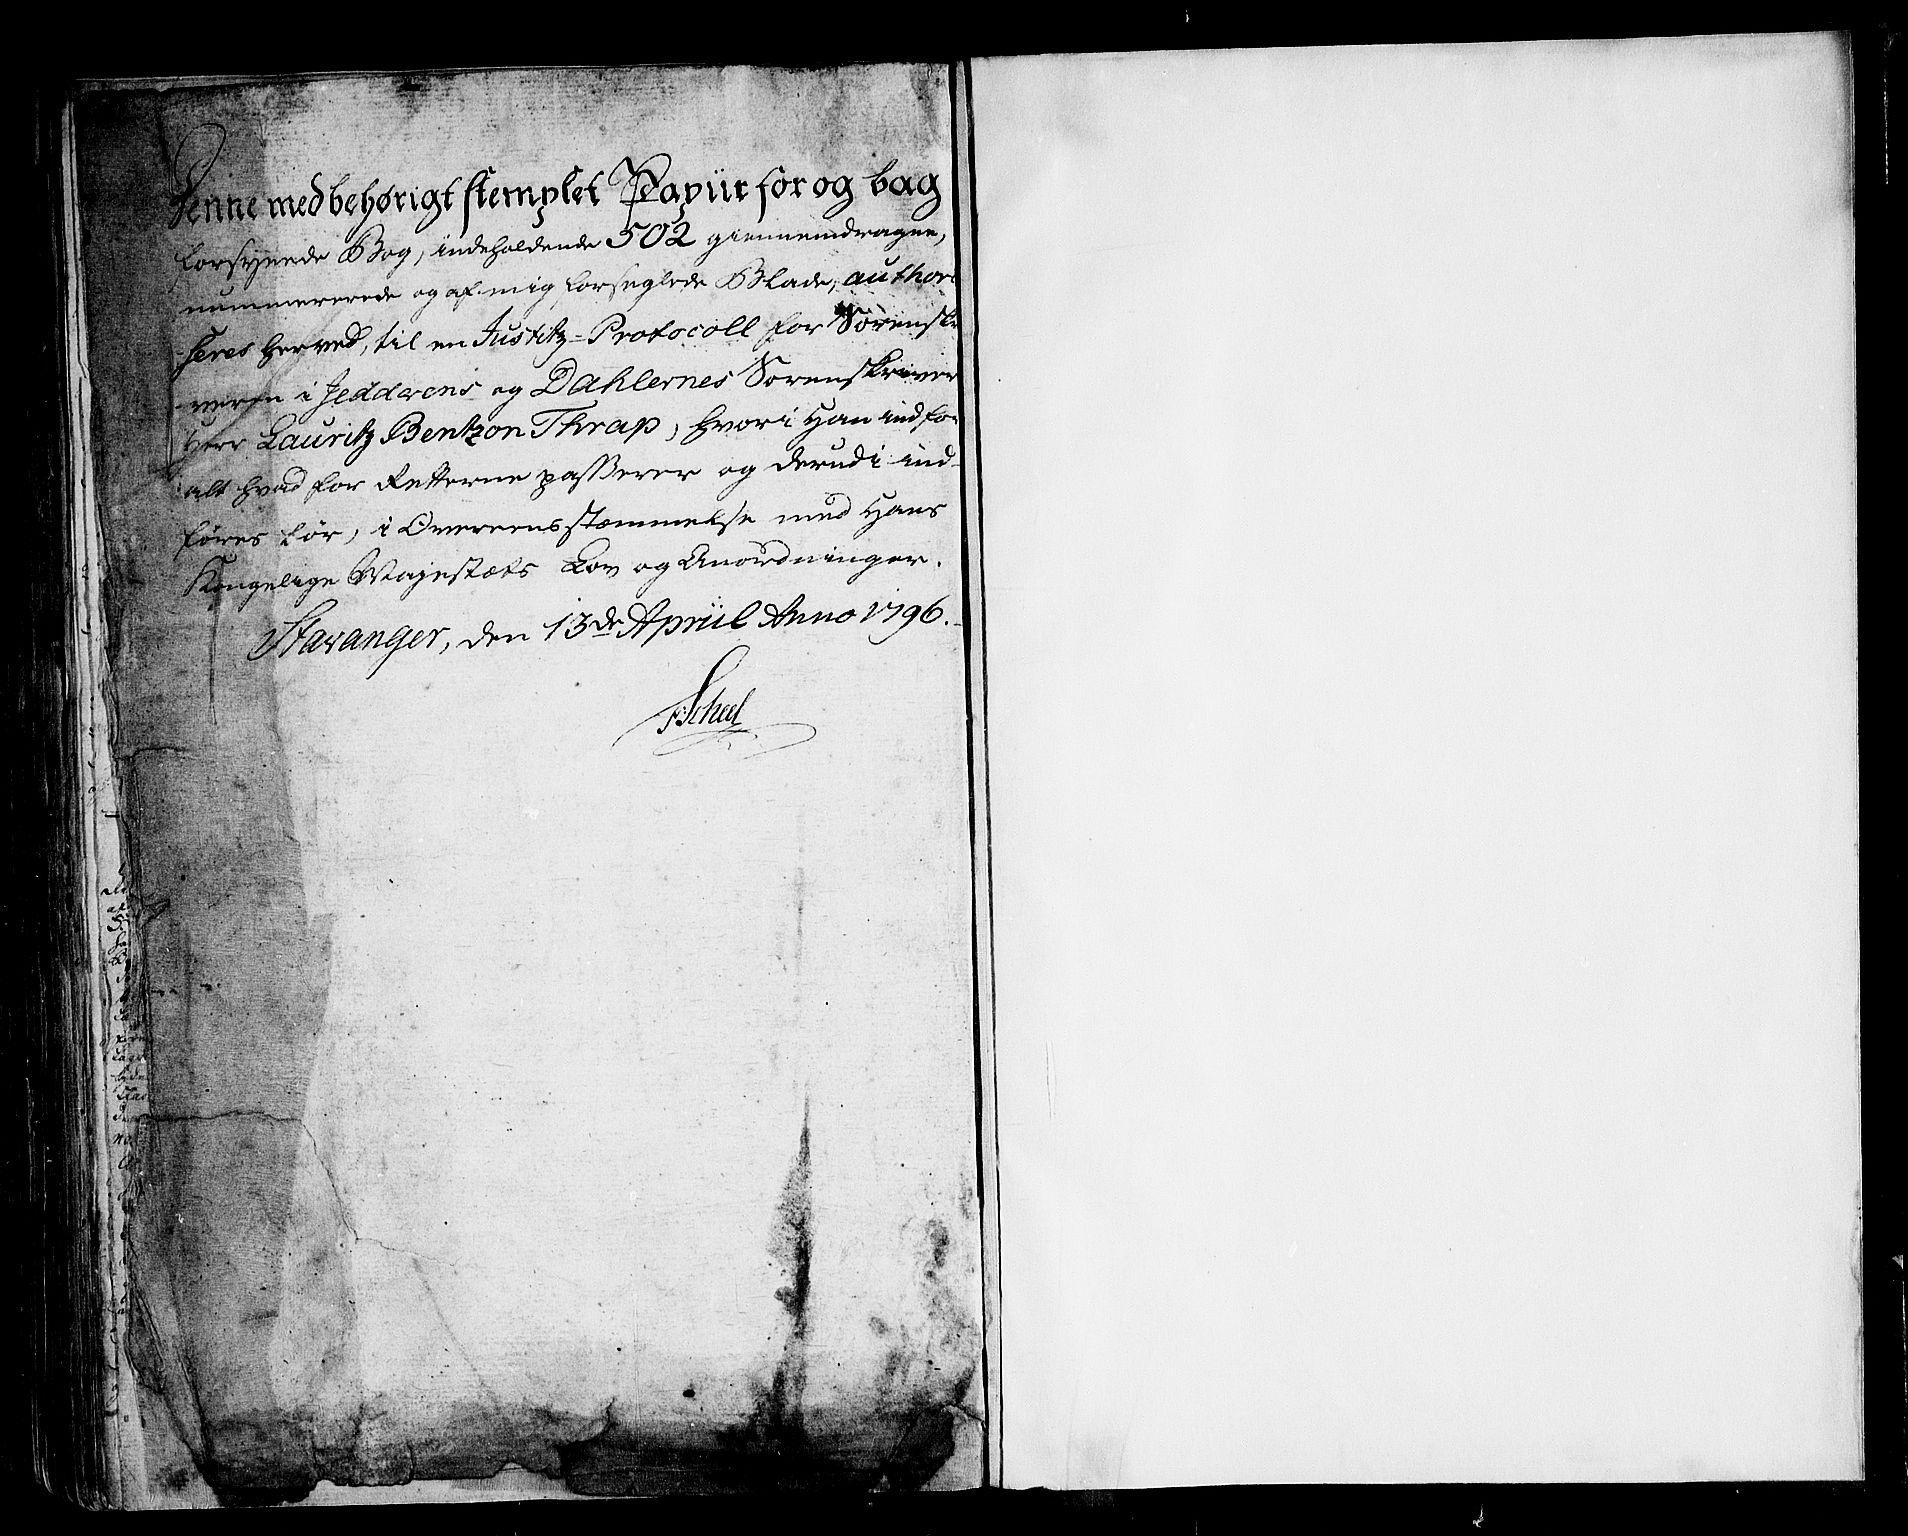 Denne med behørigt stemplet Papiir for og bag
forsynede Bog, indeholdende 502 giennemdragne,
nummererede og af mig forseglede Blade, authori
seres herved, til en Justitz-Protocoll for Sørenskri
veren i Jedderens og Dahlernes Sorenskriverie
Herr Lauritz Bentzon Thrap, hvori Han indfører
alt hvad for Retterne passerer og derudi ind-
føres bør, i Overeensstemmelse med Hans
Kongelige Majestæts Lov og Anordninger.
Stavanger, den 13de Apriil Anno 1796.
Scheel